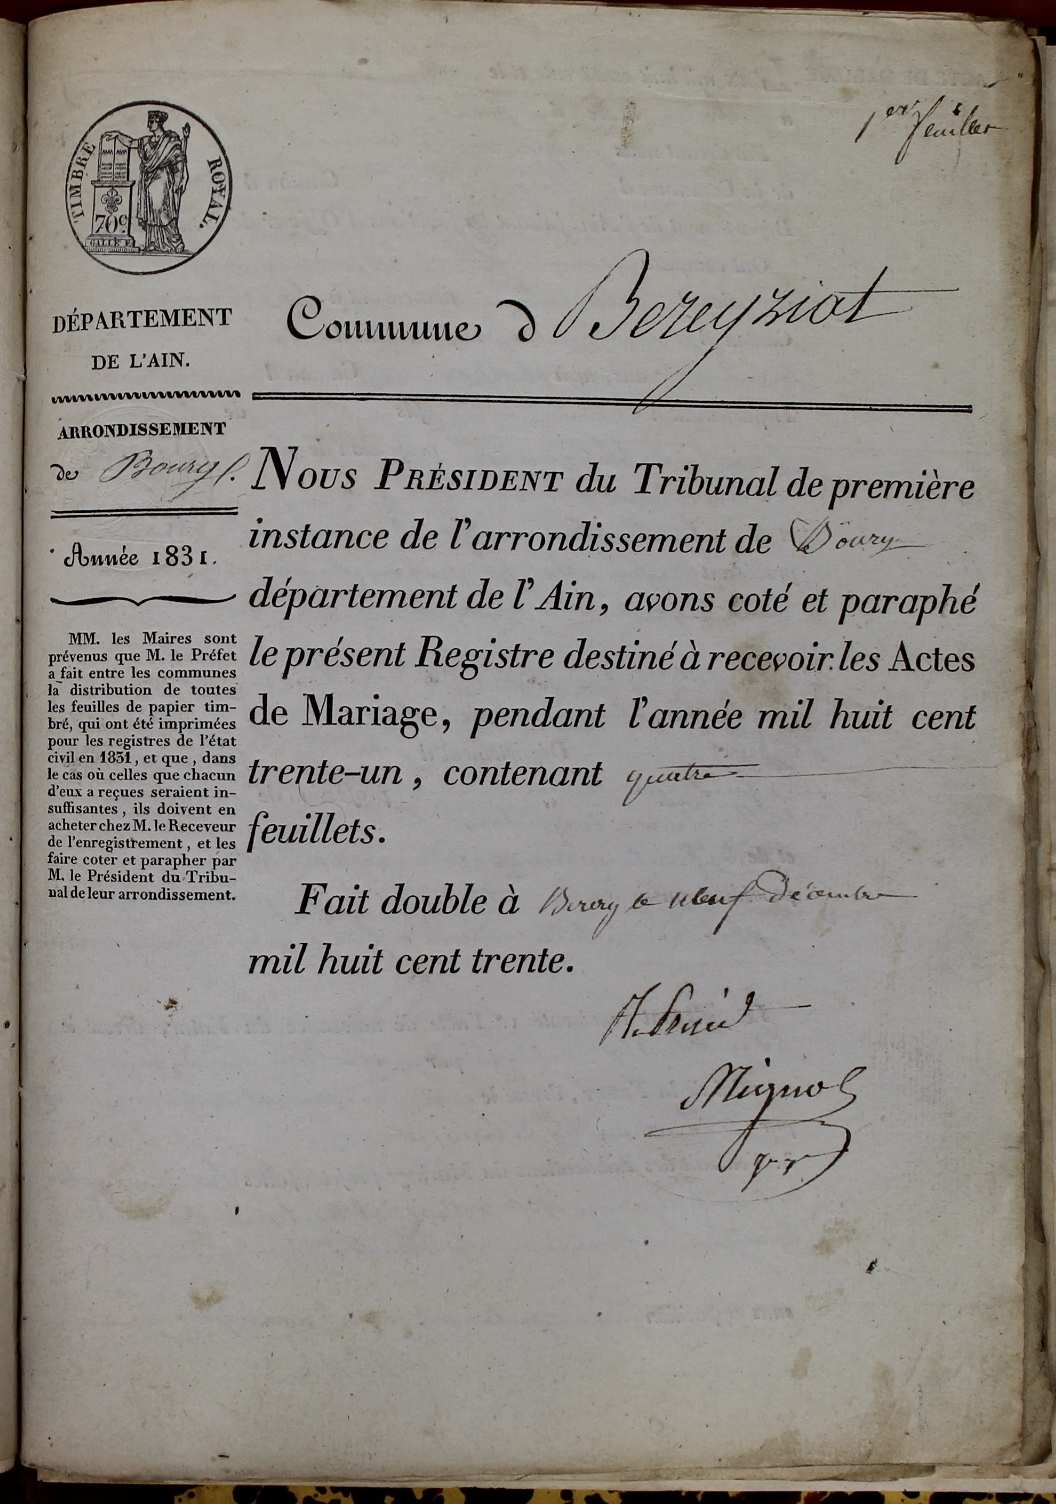 1er feuillet
TIMBRE ROYAL.
70c
DÉPARTEMENT
DE L'AIN.
ARRONDISSEMENT
de Bourg
Année 1831.
MM. les Maires sont
prévenus que M. le Préfet
a fait entre les communes
la distribution de toutes
les feuilles de papier tim-
bré, qui ont été imprimées
pour les registres de l'état
civil en 1831, et que, dans
le cas où celles que chacun
d'eux a reçues seraient in-
suffisantes, ils doivent en
acheter chez M. le Receveur
de l'enregistrement, et les
faire coter et parapher par
M. le Président du Tribu-
nal de leur arrondissement.
Commune d Bereyziat
NOUS PRÉSIDENT du Tribunal de première
instance de l'arrondissement de Bourg
département de l'Ain, avons coté et paraphé
le présent Registre destiné à recevoir les Actes
de Mariage, pendant l'année mil huit cent
trente-un, contenant quatre
feuillets.
Fait double à Bourg le neuf Décembre
mil huit cent trente.